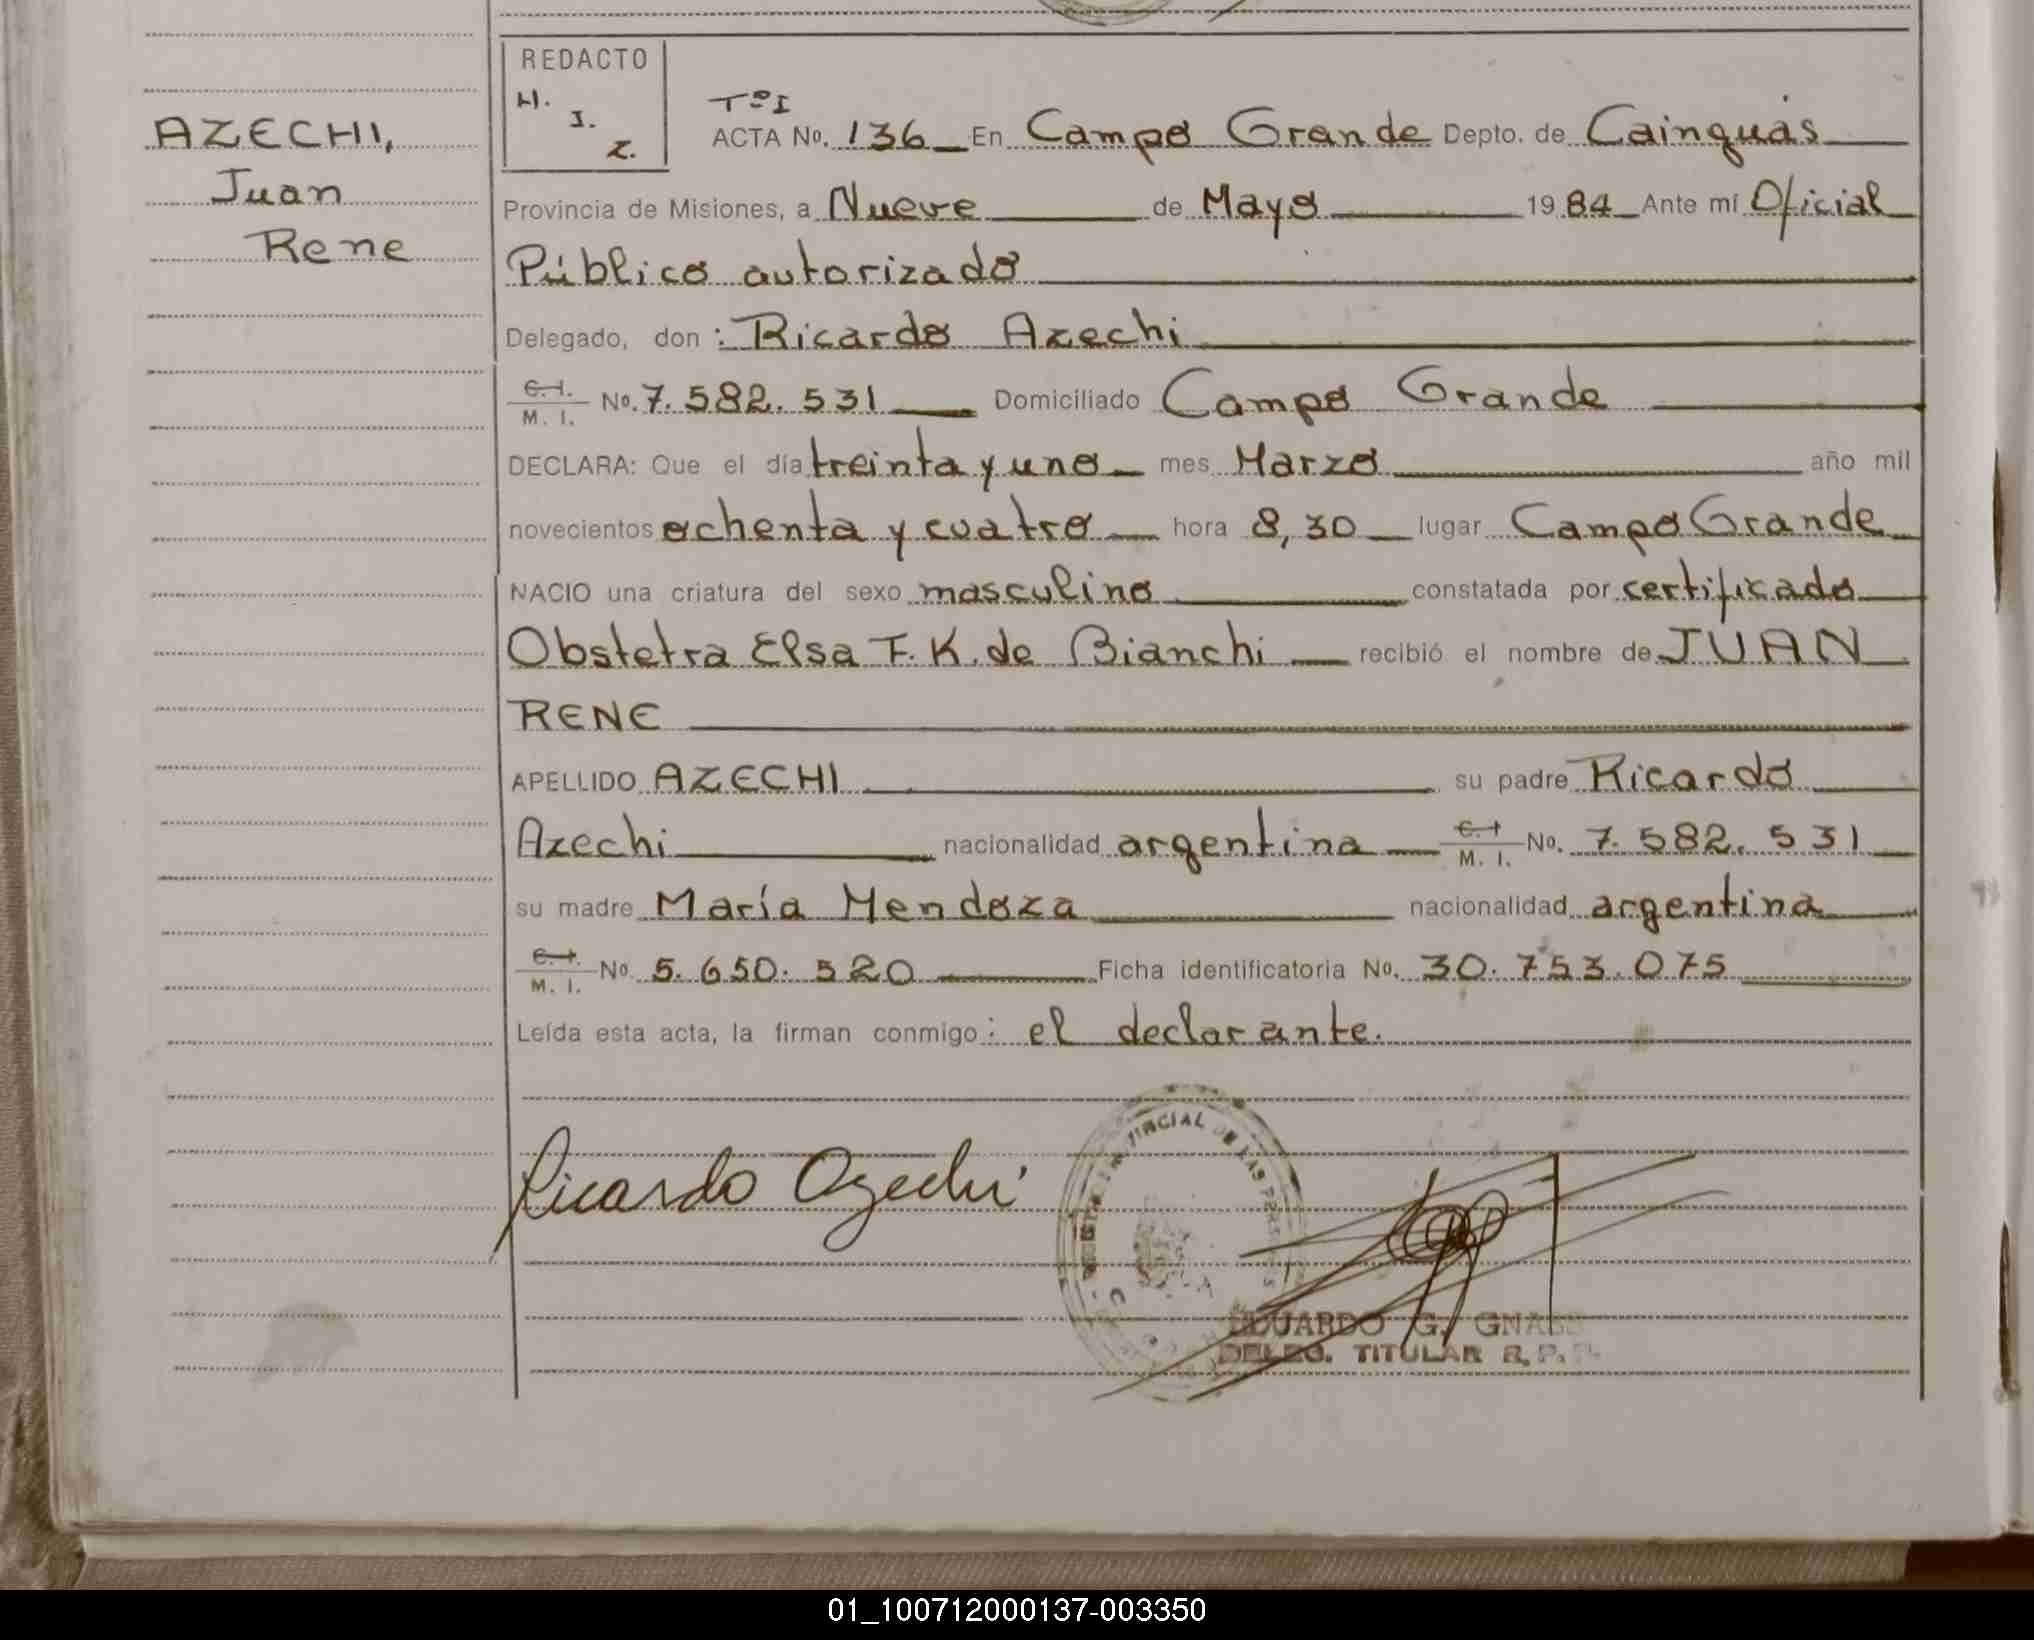 REDACTO
H.
I.
Z.
AZECHI,
Juan
Rene
Tº I
ACTA No. 136 En Campo Grande Depto. de Cainguás
Provincia de Misiones, a Nueve de Mayo 1984 Ante mí Oficial
Público autorizado
Delegado, don : Ricardo Azechi
C. I. / M. I. No. 7. 582. 531 Domiciliado Campo Grande
DECLARA: Que el día treinta y uno mes Marzo año mil
novecientos ochenta y cuatro hora 8,30 lugar Campo Grande
NACIO una criatura del sexo masculino constatada por certificado
Obstetra Elsa F. K. de Bianchi recibió el nombre de JUAN
RENE
APELLIDO AZECHI su padre Ricardo
Azechi nacionalidad argentina C. I. / M. I. No. 7. 582. 531
su madre María Mendoza nacionalidad argentina
C. I. / M. I. No. 5. 650. 520 Ficha identificatoria No. 30. 753. 075
Leída esta acta, la firman conmigo : el declarante.
Ricardo Azechi
VINCIAL DE LAS
EDUARDO G.
DELEG. TITULAR R. P.
01_100712000137-003350